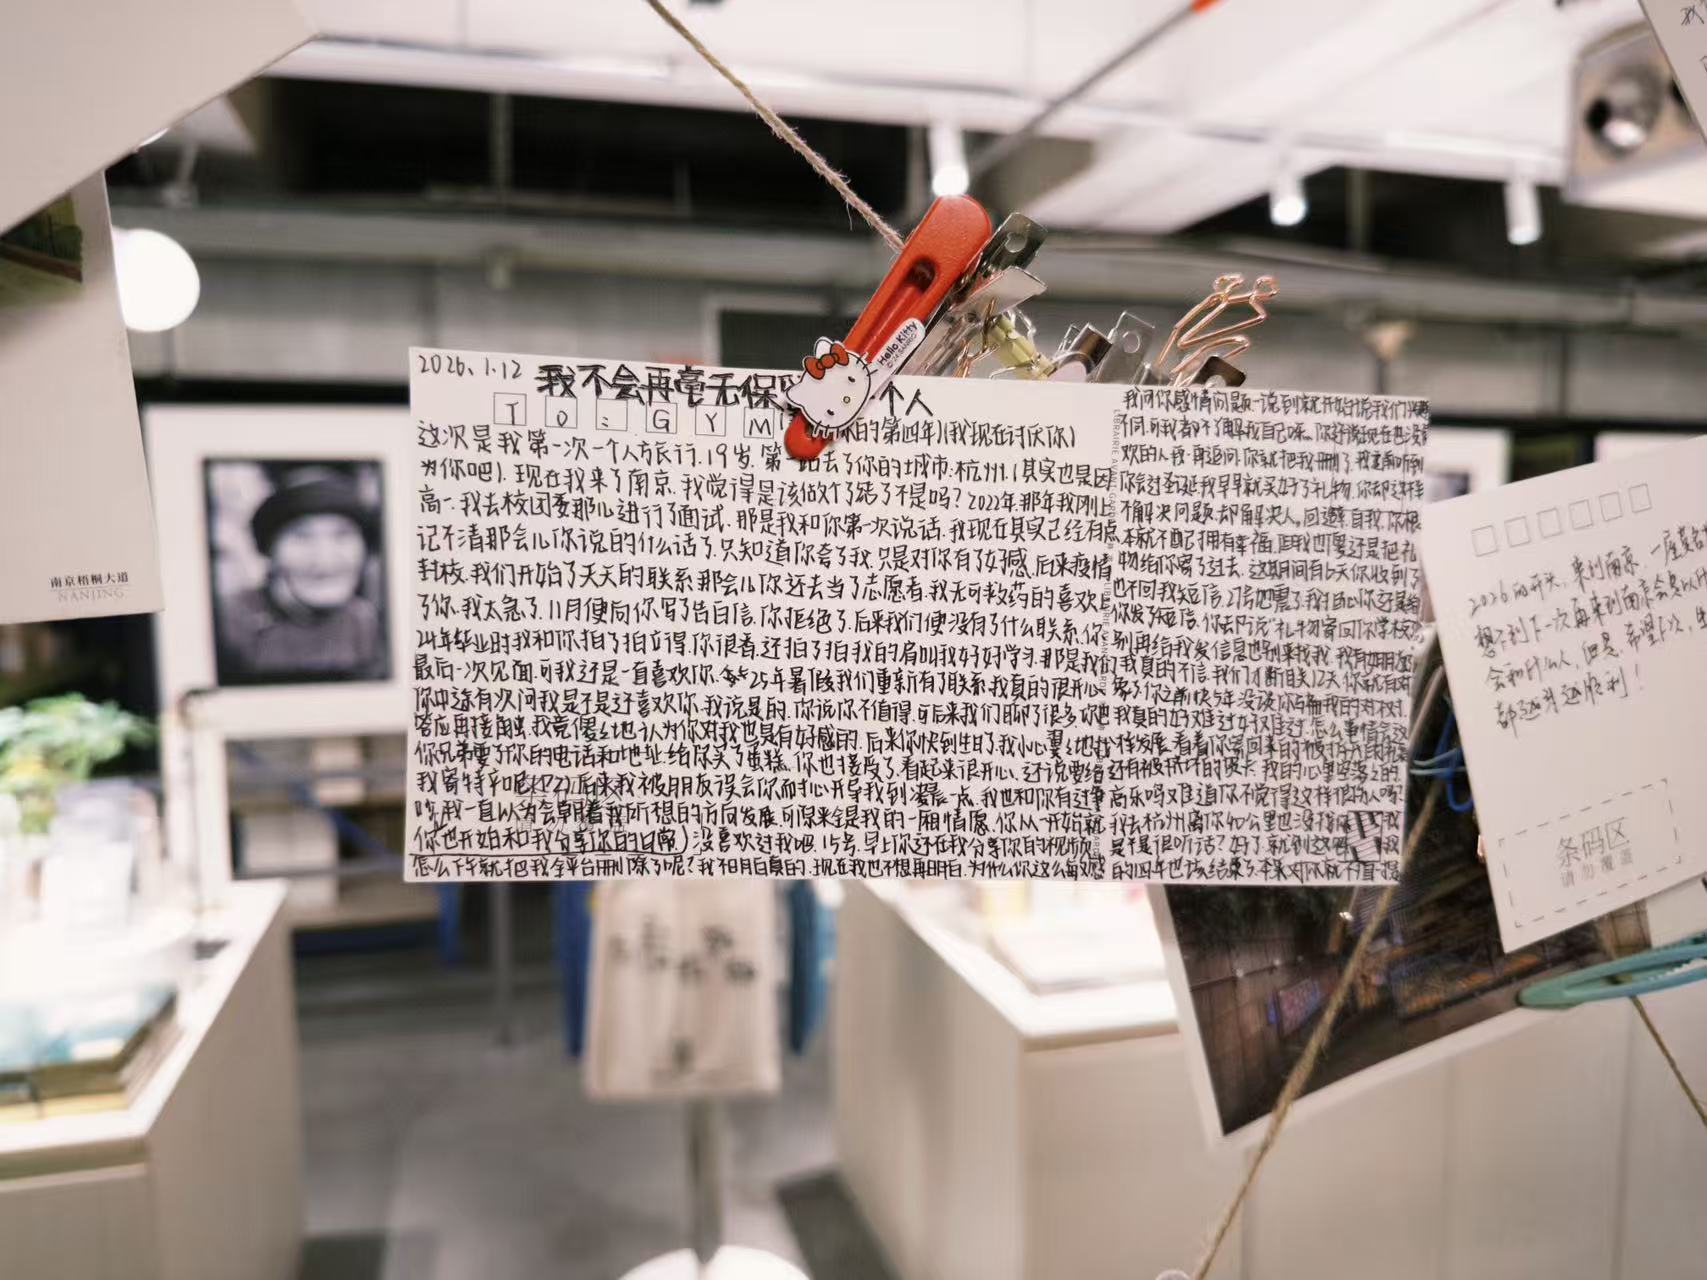 2026.1.12 我不会再毫无保 个人
TO:GYM
你的第四年)(我现在讨厌你)
这次是我第一次一个人方旅行.19岁.第一站去了你的城市:杭州.(其实也是因
为你吧).现在我来了南京.我觉得是该做个了结了不是吗?2022年.那年我刚上
高一.我去校团委那儿进行了面试.那是我和你第一次说话.我现在其实已经有点
记不清那会儿你说的什么话了.只知道你夸了我.只是对你有了好感.后来疫情
封校.我们开始了天天的联系.那会儿你还去当了志愿者.我无可救药的喜欢上
了你.我太急了.11月便向你写了告白信.你拒绝了.后来我们便没有了什么联系.
24年毕业时我和你拍了拍立得.你很香.还拍了拍我的肩叫我好好学习.那是我们
最后一次见面.可我还是一直喜欢你.25年暑假我们重新有了联系.我真的很开心.
你中途有次问我是不是还喜欢你.我说是的.你说你不值得.可后来我们聊了很多你也
答应再接触.我竟傻到地认为你对我也是有好感的.后来你快到生日了.我小心翼翼地找
你兄弟要了你的电话和地址.给你买了蛋糕.你也接受了.看起来很开心.还说要给
我寄特产呢.后来我被朋友误会你而担心开导我到凌晨一点.我也和你有过
我一直以为会朝着我所想的方向发展.可原来全是我的一厢情愿.你从一开始就
你也开始和我分享你的日常)没喜欢过我吧.15号.早上你还在我分享你的视频
怎么下午就把我全平台删除了呢?我不明白真的.现在我也不想再明白.为什么你这么敏感
我问你感情问题.一说到就开始说我们
不同.可我都不了解我自己
欢的人我.再追问.你就把我删了.我
你会过圣诞.我早早就买好了礼物.你却这样
不解决问题.却解决人.回避.自我.你根
本就不配拥有幸福.但我也还是把礼
物给你寄了过去.这期间有6天你收到了
也不回我短信.
你发了短信.你去却说"礼物寄回你学校
别再给我发信息也别来找我.
我真的不信.我们才断相关12天你就有对
我真的好难过好难过.怎么事情会这
样发展.看着你寄回来的被拆开的
还有被损坏的贺卡.我的心里空落落的.
高乐吗?难道你不觉得这样很伤人吗?
我去杭州离你40公里也没
是不是很听话?好了.就到这吧.
的四年也该结束了.本来对你就不值一提
Hello Kitty
©'24 SANRIO
南京梧桐大道
NANJING
2026的开头,来到南京.一座
想不到下一次再来到南京会是以什
会和什么人,但是,希望下次,
都越为越顺利!
条码区
请勿覆盖